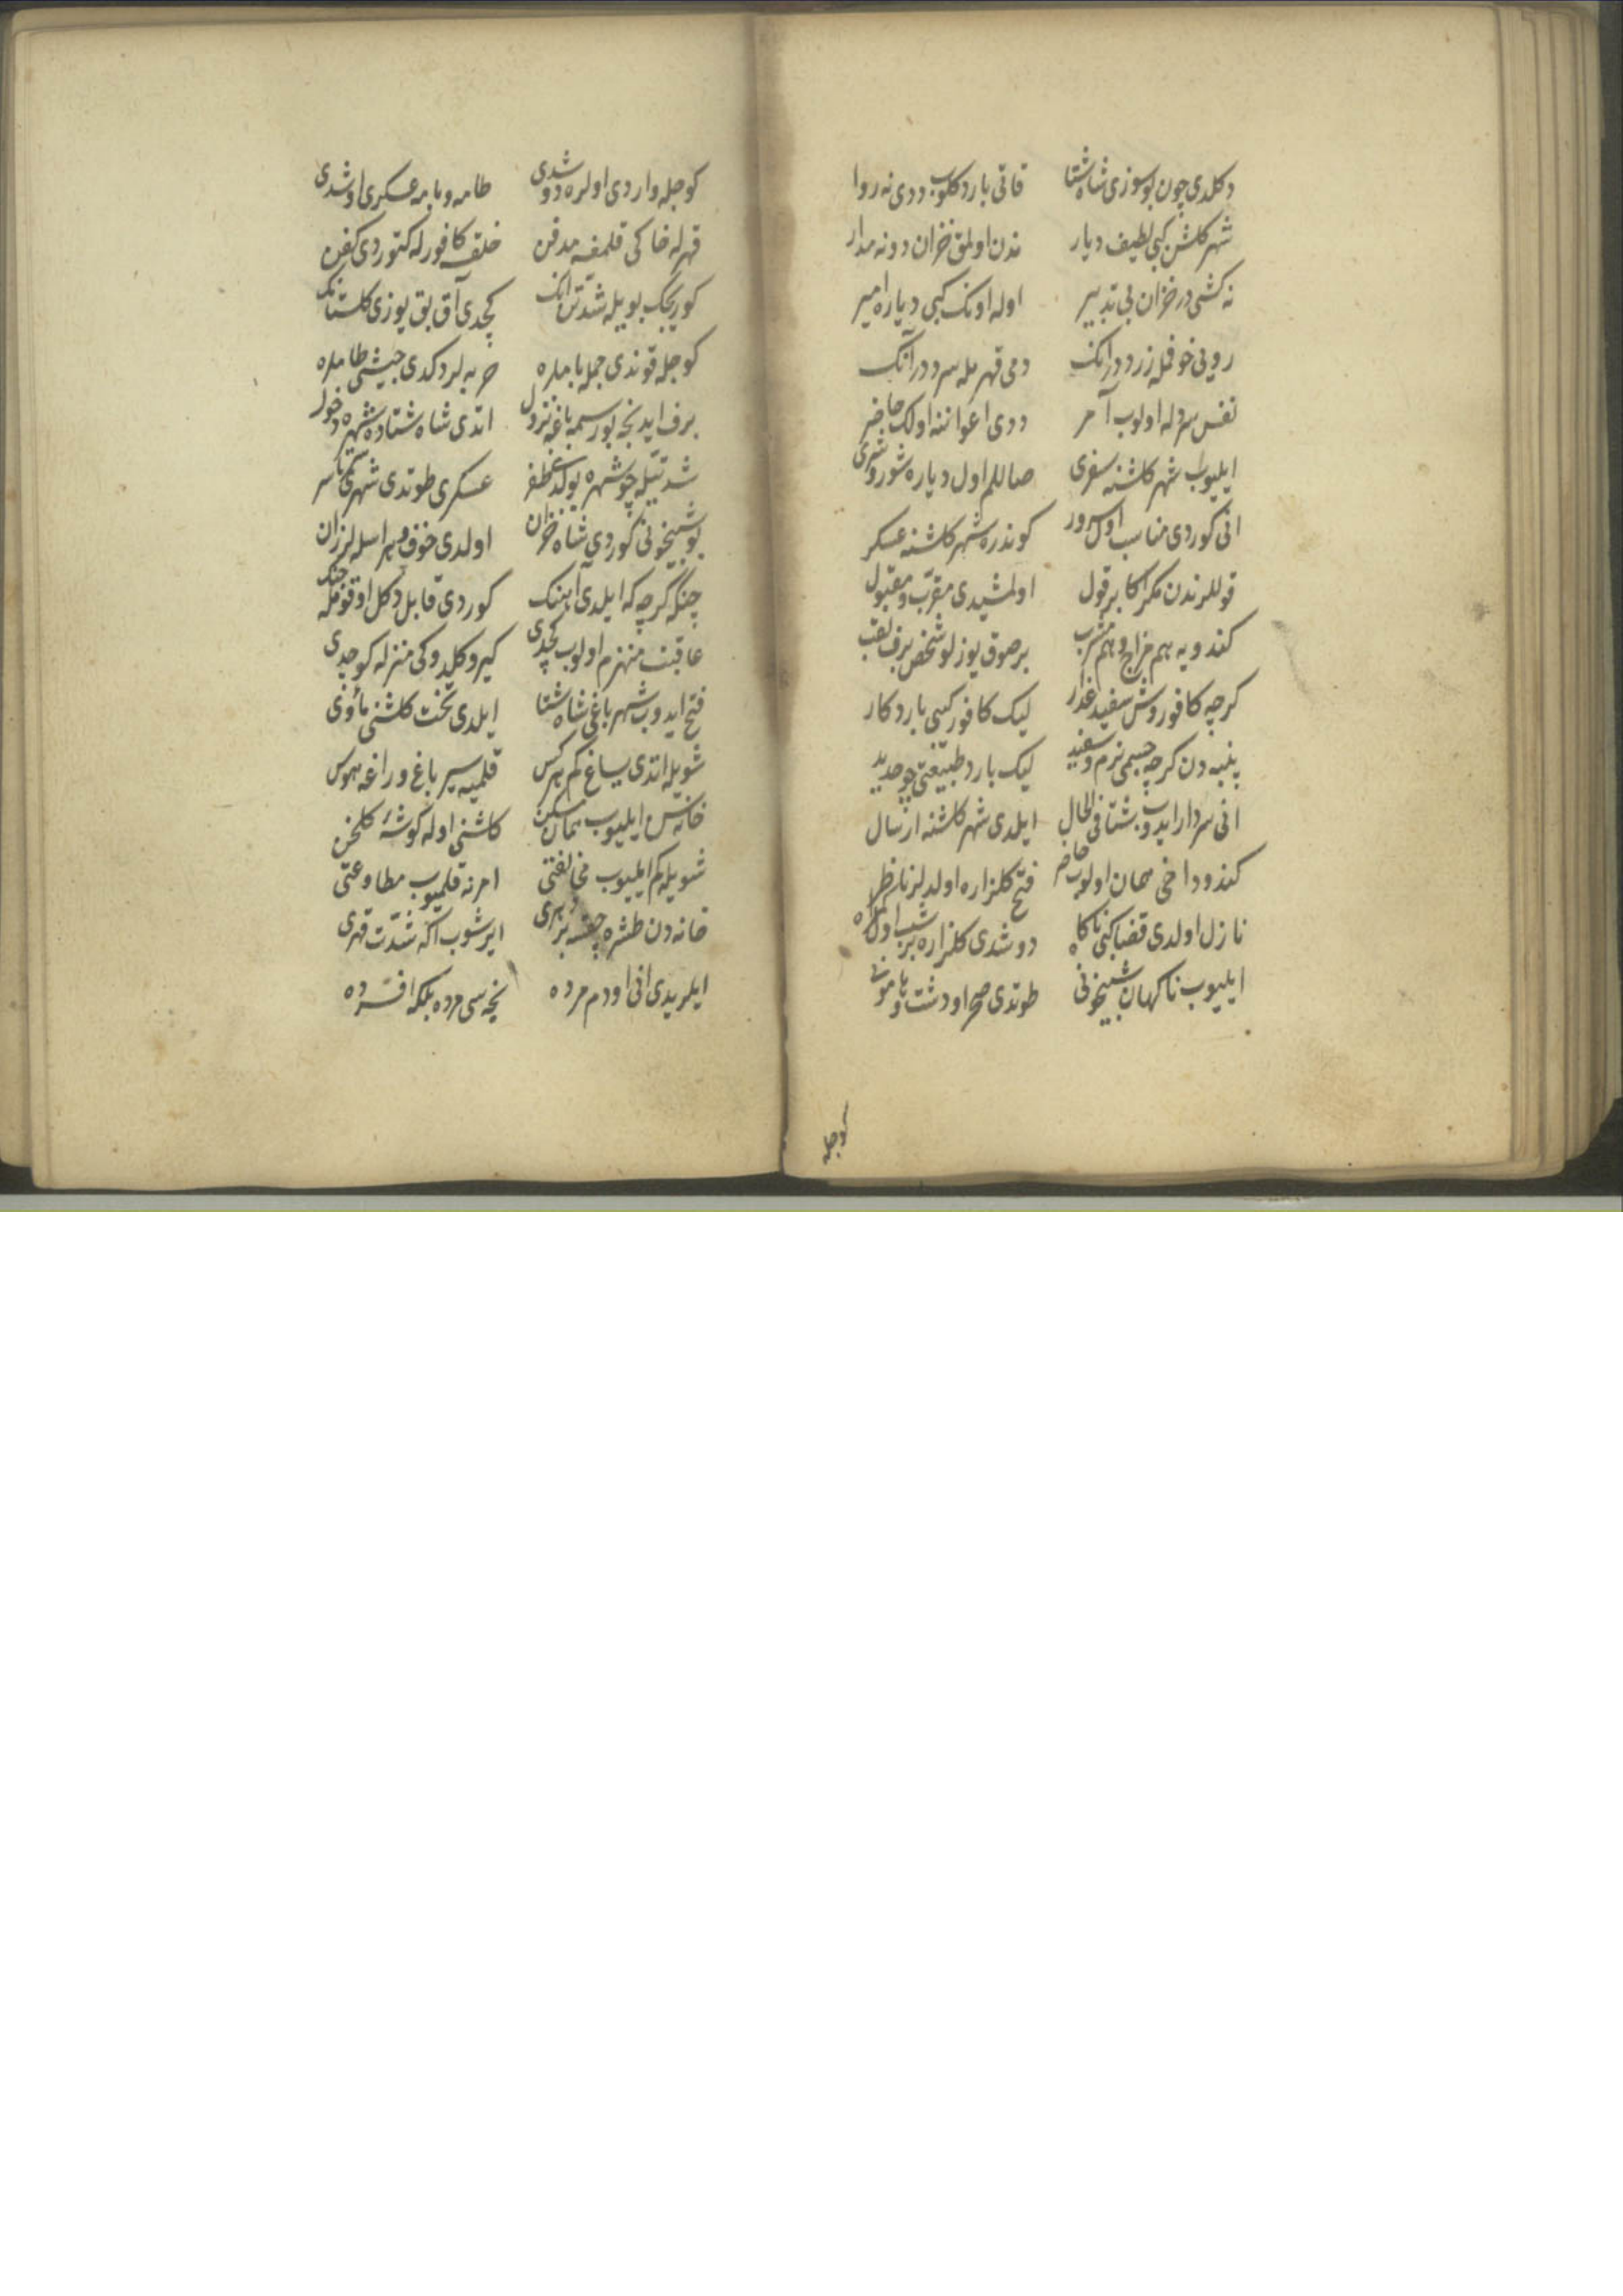 دكلدی چون بو سوزی شاه شتا قاتی بارد كلوب ددی نه روا
شهر كلشن كبی لطیف دیار ندن اولمق خزان دونه مدار
نه كشی در خزان بی تدبیر اوله اونك كبی دیاره امیر
رویی خوفله زرد در انك دمی قهر مله سرد در آنك
نفس سردله اولوب آمر ددی اعواننه اولك حاضر
ایلیوب شهر كلشنه سفری صالالم اول دیاره شور و شری
انی كوردی مناسب اول سرور كوندره شهر كلشنه عسكر
قوللرندن مكر اكا بر قول اولمشیدی مقرب و مقبول
كندویه هم مزاج و هم مشرب بر صوق یوزلو شخص برف لقب
كرچه كافوروش سفید عذار لیك كافور كبی بارد كار
پنبه دن كرچه جسمی نرم و سفید لیك بارد طبیعتی چو حدید
انی سردار ایدوب شتا فی الحال ایلدی شهر كلشنه ارسال
كندو داخی همان اولوب حاضر فتح كلزاره اولدیلر ناظر
نازل اولدی قضا كبی ناكاه دوشدی كلزاره بر شب اول كمراه
ایلیوب ناكهان شبیخونی طوتدی صحرا و دشت و هامونی
كوجله
كوجله واردی اولره دوشدی طامه و بامه عسكری اوشدی
قهرله خاكی قلمغه مدفن خلقه كافورله كتوردی كفن
كوریجك بویله شدتن انك كچدی آق بق یوزی كلستانك
كوجله قوندی جمله بامله حربه لر دكدی جیشی طامله
برف ایدنجه بو رسمه باغه نزول اتدی شاه شتا ده شهره دخول
شدتیله چو شهره بولدی ظفر عسكری طوتدی شهری یكسر
بو شبیخونی كوردی شاه خزان اولدی خوف و هراسله لرزان
جنكه كرچه كه ایلدی آهنك كوردی قابل دكل او قومله جنك
عاقبت منهزم اولوب كچدی كیرو كلدوكی منزله كوچدی
فتح ایدوب شهر باغی شاه شتا ایلدی تخت كلشنی مأوی
شویله اتدی یساغ كم هركس قلمیه سیر باغ و راغه هوس
خانه سن ایلیوب همان مسكن كلشنی اوله كوشهٔ كلخن
شویله كم ایلیوب مخالفتی امرنه قلمیوب مطاوعتی
خانه دن طشره چقسه بر بری ایرشوب اكه شدت قهری
ایلریدی انی اودم مرده نیجه سی مرده بلكه افسرده